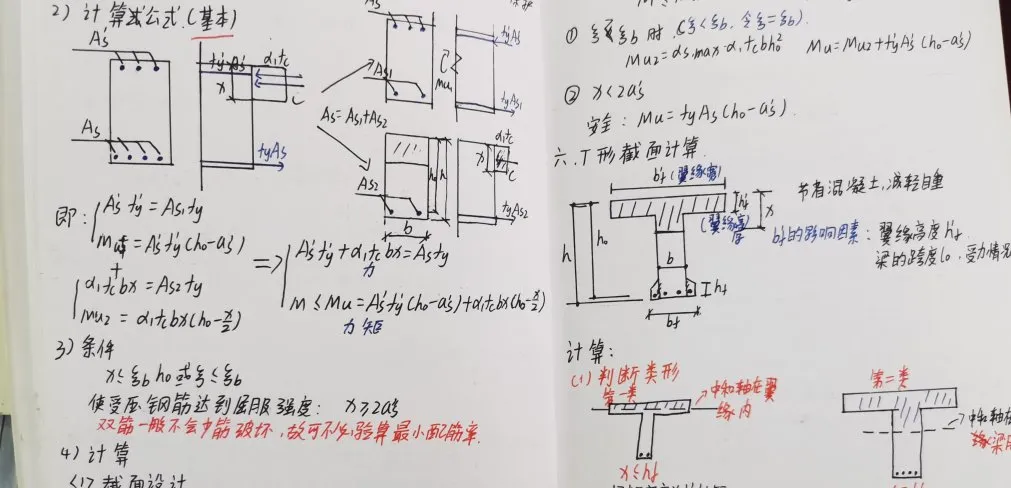 2) 计算式公式.(基本)
As'
fy'As'
α1fc
x
C
As
fyAs
As1
Mu1
fy'As'
fyAs1
As=As1+As2
As2
h0
h
b
α1fc
x
C
fyAs2
即:
As'fy'=As1fy
=As'fy'(h0-as')
+
α1fcbx=As2fy
Mu2=α1fcbx(h0-x/2)
=>
As'fy'+α1fcbx=Asfy
力
M≤Mu=As'fy'(h0-as')+α1fcbx(h0-x/2)
力矩
3)条件
x≤ξbh0或ξ≤ξb
使受压钢筋达到屈服强度: x≥2as'
双筋一般不会少筋破坏,故可不必验算最小配筋率.
4)计算
(1)截面设计
Mu2=αs,max·α1fcbh0² Mu=Mu2+fy'As'(h0-as')
② x<2as'
安全: Mu=fyAs(h0-as').
六.T形截面计算.
bf'(翼缘宽)
hf'
x
(翼缘高度
h
h0
b
hf
bf
节省混凝土,减轻自重
bf'的影响因素: 翼缘高度hf'
梁的跨度l0,受力情况
计算:
(1)判断类形
第一类
中和轴在翼
缘内
x≤hf'
第二类
中和轴在